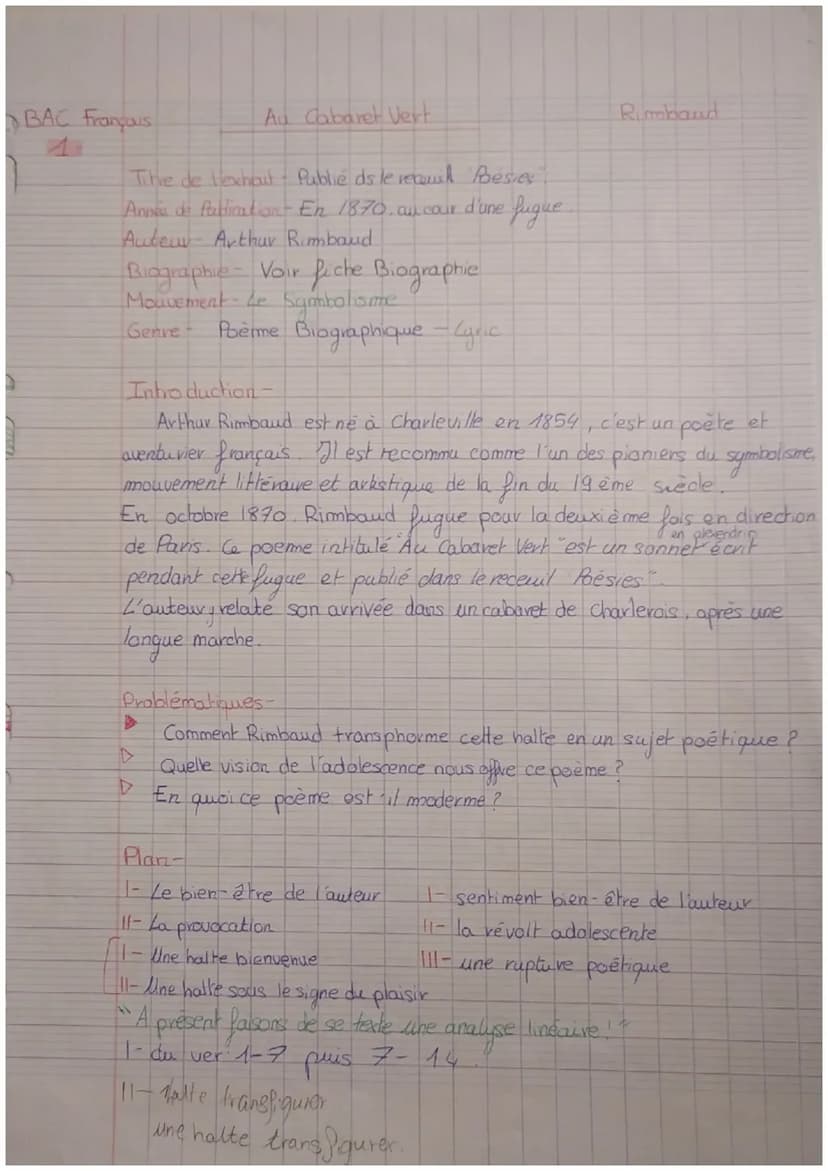 BAC Français Au Cabaret Vert Rimbaud
1
Titre de l'extrait - Publié ds le receuil "Poésies"
Année de Publication - En 1870. au cour d'une fugue
Auteur - Arthur Rimbaud
Biographie - Voir fiche Biographie
Mouvement - Le Symbolisme
Genre - Poème Biographique - Lyric
Introduction -
Arthur Rimbaud est né à Charleville en 1854, c'est un poète et
aventurier français. Il est reconnu comme l'un des pioniers du symbolisme,
mouvement littéraire et artistique de la fin du 19ème siècle.
En octobre 1870. Rimbaud fugue pour la deuxième fois en direction
de Paris. Ce poeme intitulé "Au Cabaret Vert" est un sonnet en alexandrin écrit
pendant cette fugue et publié dans le receuil "Poésies".
L'auteur y relate son arrivée dans un cabaret de Charlerois, après une
longue marche.
Problématiques -
Comment Rimbaud transphorme cette halte en un sujet poétique ?
Quelle vision de l'adolescence nous offre ce poème ?
En quoi ce poème est-il moderne ?
Plan -
I - Le bien-être de l'auteur I - sentiment bien-être de l'auteur
II - La provocation II - la révolt adolescente
I - Une halte bienvenue III - une rupture poétique
II - Une halte sous le signe du plaisir
"A présent faisons de se texte une analyse linéaire !"
I - du ver 1-7 puis 7-14.
II - halte transfigurer
une halte transfigurer.